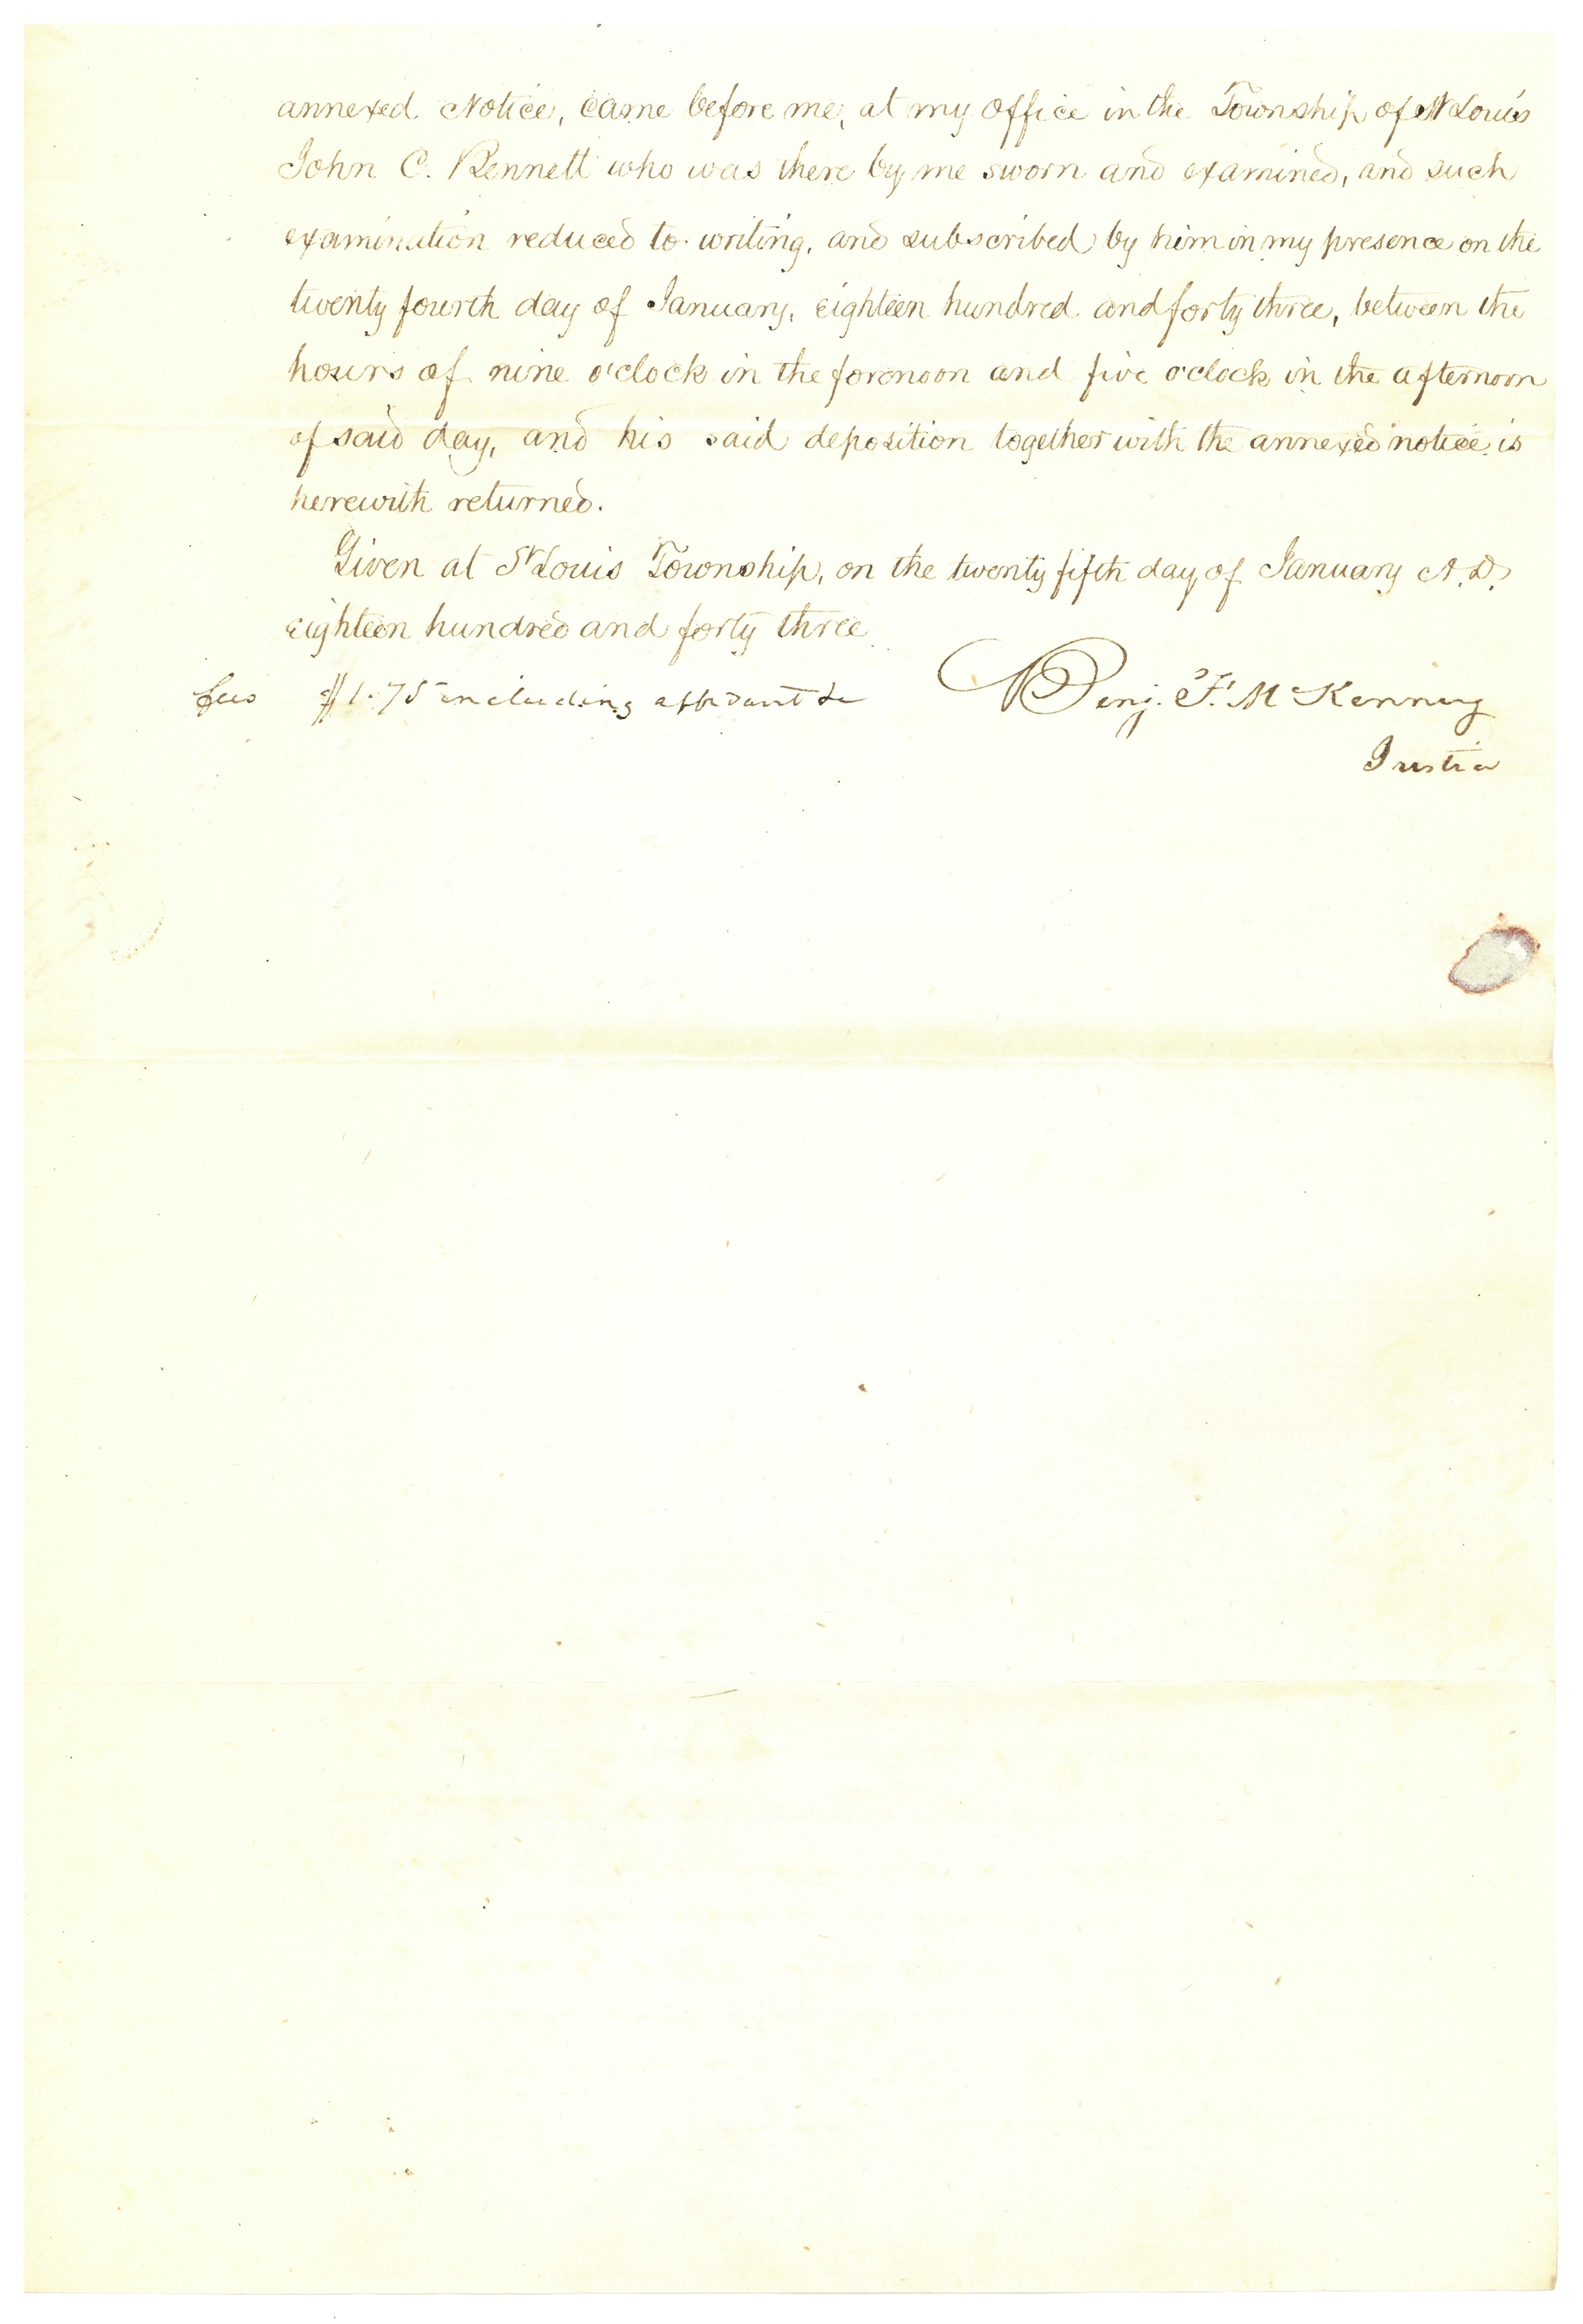 annexed Notice, came before me, at my office in the Township of St Louis
John C. Bennett who was there by me sworn and examined, and such
examination reduced to writing, and subscribed by him in my presence on the
twenty fourth day of January, eighteen hundred and forty three, between the
hours of nine o'clock in the forenoon and five o'clock in the afternoon
of said day, and his said deposition together with the annexed notice is
herewith returned.
Given at St Louis Township, on the twenty fifth day of January A.D.
eighteen hundred and forty three
fees $1.75 including affidavit &c
Benj. F. McKenney
Justice